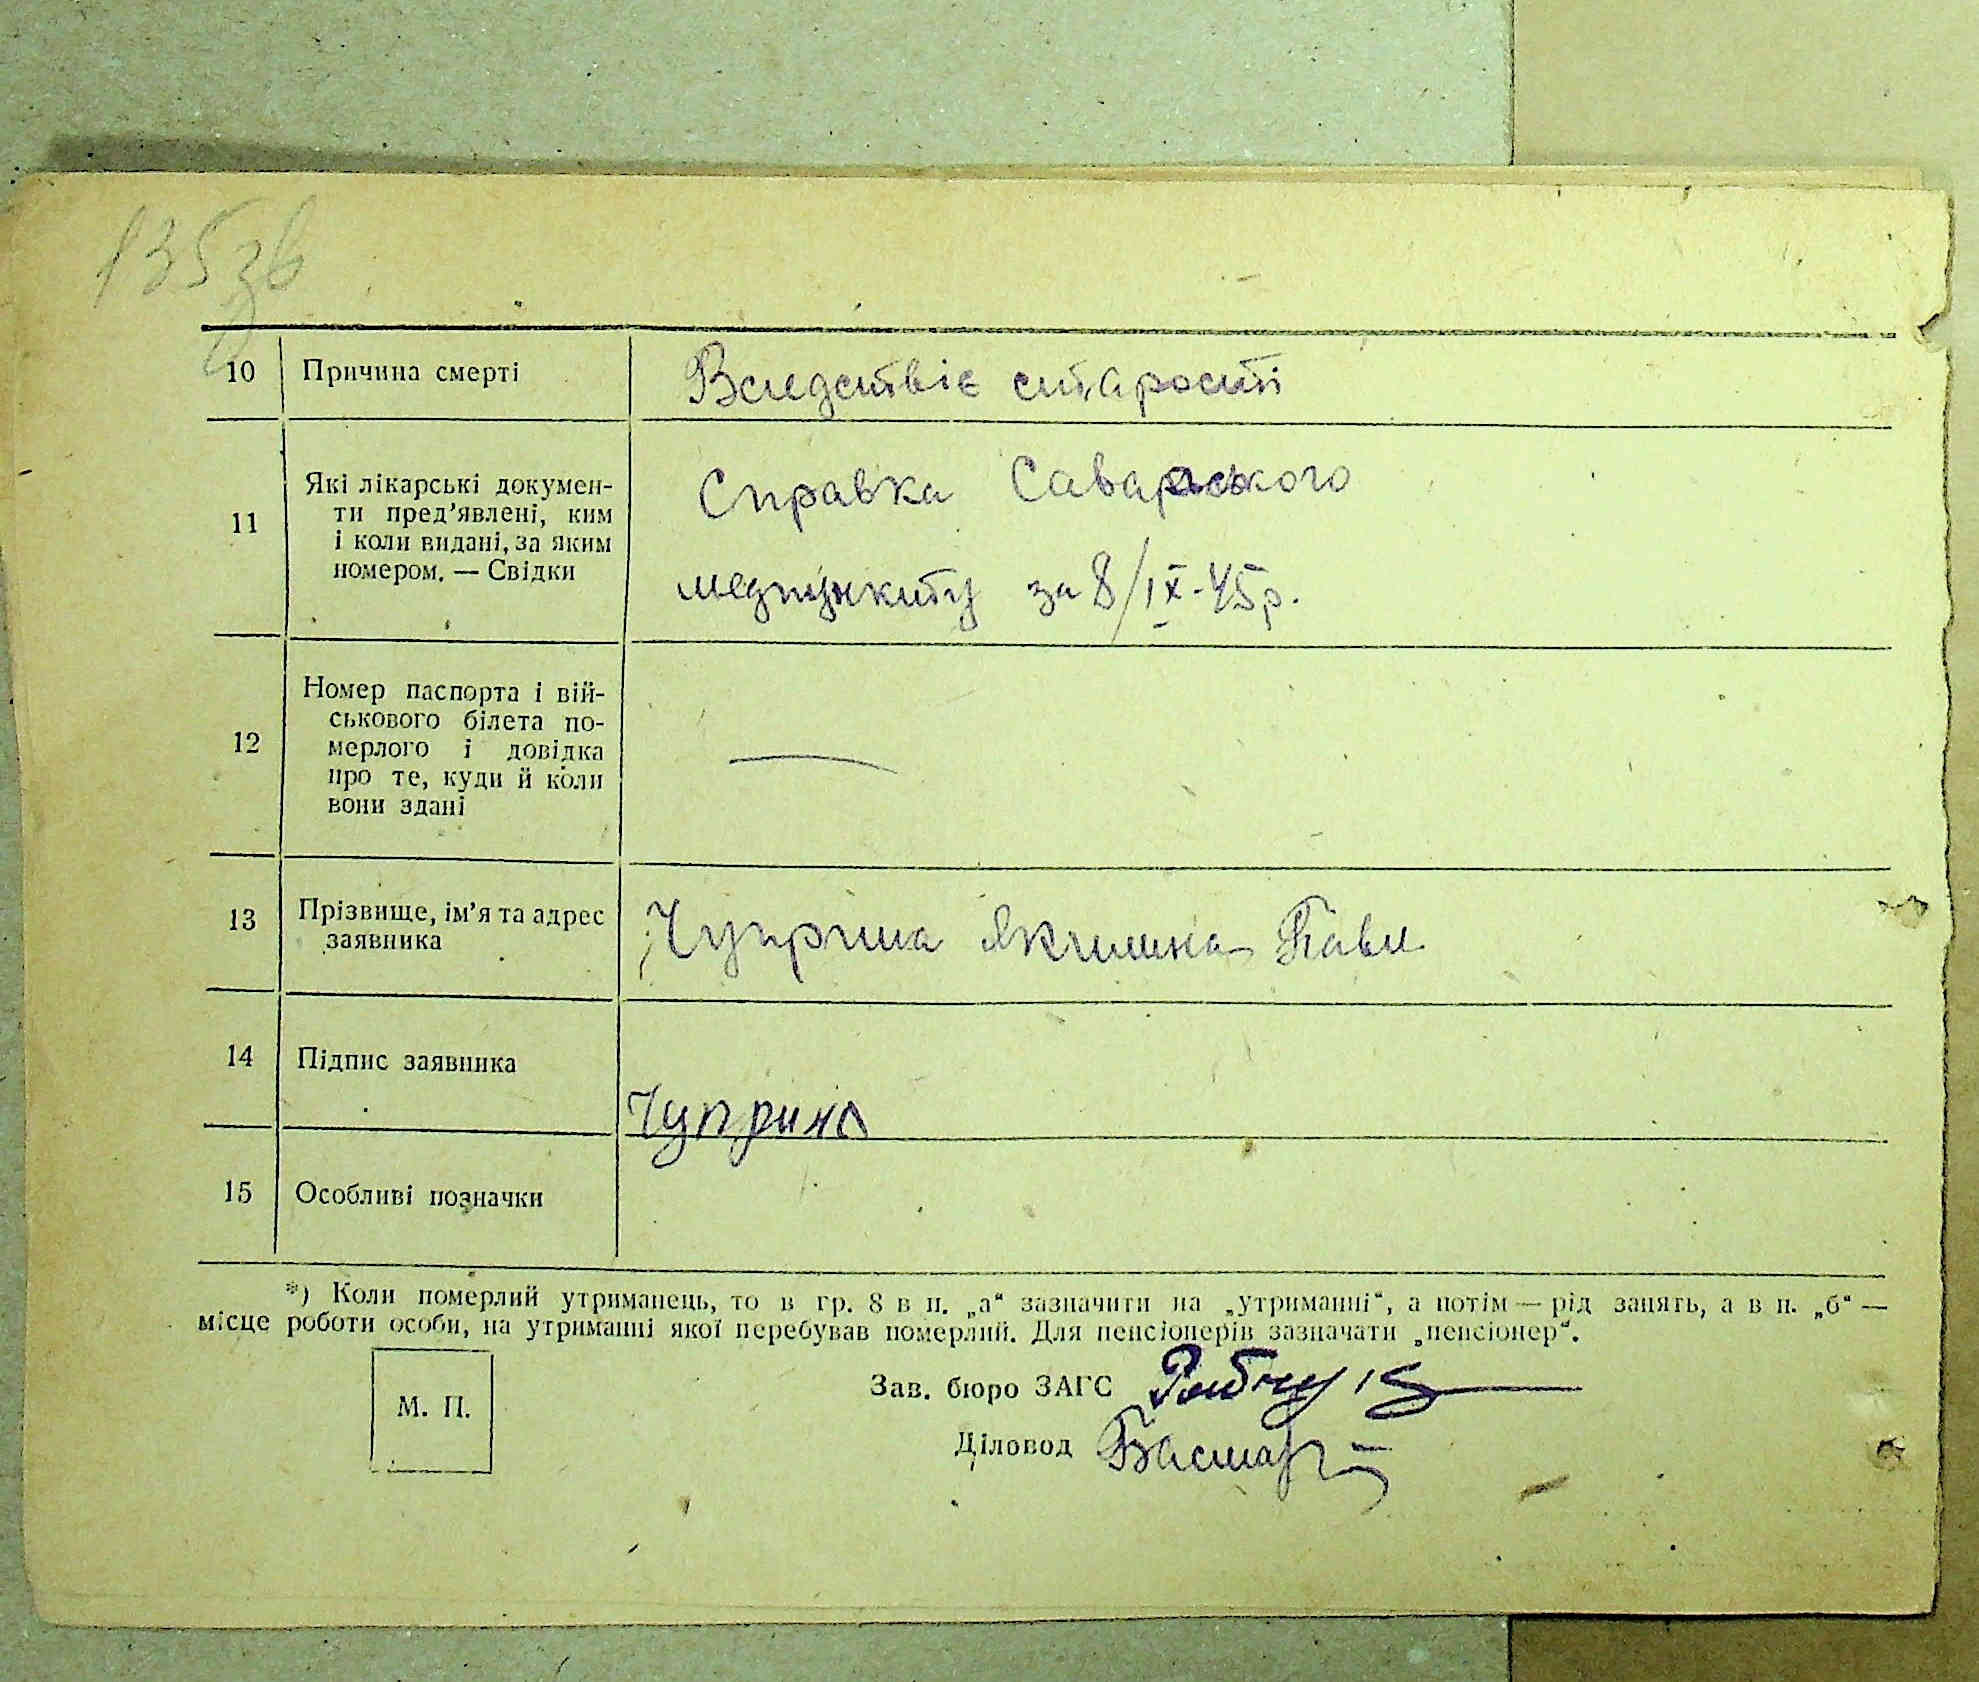 135зв
10 Причина смерті Вследствіє старості
11 Які лікарські докумен-
ти пред'явлені, ким
і коли видані, за яким
номером. — Свідки
Справка Саварського
медпункту за 8/IX-45р.
12 Номер паспорта і вій-
ськового білета по-
мерлого і довідка
про те, куди й коли
вони здані
—
13 Прізвище, ім'я та адрес
заявника
Чуприна Якимина Павл
14 Підпис заявника
Чуприна
15 Особливі позначки
*) Коли померлий утриманець, то в гр. 8 в п. „а“ зазначити на „утриманні“, а потім — рід занять, а в п. „б“ —
місце роботи особи, на утриманні якої перебував померлий. Для пенсіонерів зазначати „пенсіонер“.
М. П.
Зав. бюро ЗАГС
Діловод